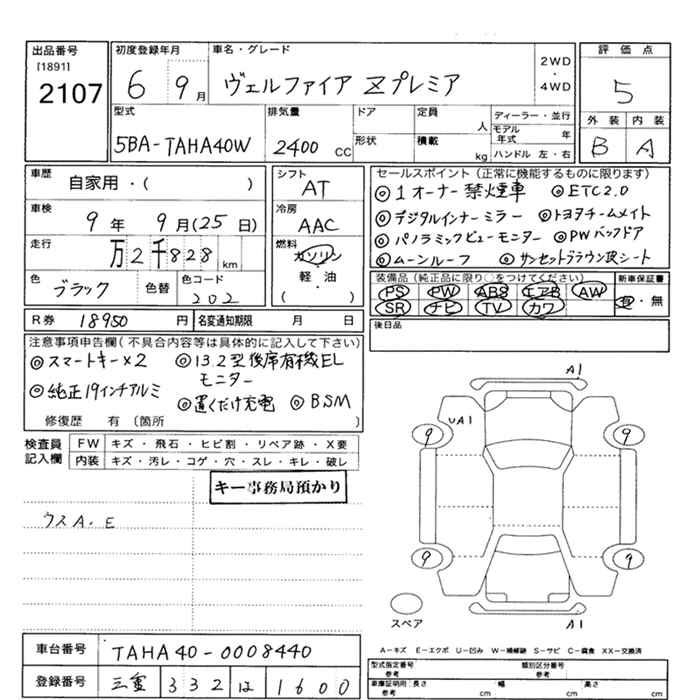 出品番号
[1891]
2107
初度登録年月
6 9月
車名・グレード
ヴェルファイア Zプレミア
2WD
・
4WD
評価点
5
外装 内装
B A
型式
5BA-TAHA40W
排気量
2400 CC
ドア
形状
定員
人
積載
kg
ディーラー・並行
モデル年式 年
ハンドル 左・右
車歴
自家用・( )
車検
9年 9月(25日)
走行
万2千828km
色
ブラック 色替
色コード
202
シフト
AT
冷房
AAC
燃料
ガソリン
軽・油
( )
セールスポイント(正常に機能するものに限ります)
◎1オーナー禁煙車 ◎ETC2.0
◎デジタルインナーミラー ◎トヨタチームメイト
◎パノラミックビューモニター ◎PWバックドア
◎ムーンルーフ ◎サンセットブラウン皮シート
装備品(純正品に限り○をつけてください)
PS PW ABS エアB AW
SR ナビ TV カワ
新車保証書
有・無
後日品
R券 18950円 名変通知期限 月 日
注意事項申告欄(不具合内容等は具体的に記入して下さい)
◎スマートキー×2 ◎13.2型後席有機EL
モニター
◎純正19インチアルミ
◎置くだけ充電 ◎BSM
修復歴 有(箇所 )
検査員記入欄
FW キズ・飛石・ヒビ割・リペア跡・X要
内装 キズ・汚レ・コゲ・穴・スレ・キレ・破レ
キー事務局預かり
ウスA.E
A1
UA1
9 9
9 9
スペア
A1
A-キズ E-エクボ U-凹み W-補修跡 S-サビ C-腐食 XX-交換済
車台番号 TAHA40-0008440
登録番号 三重 332 は 1600
型式指定番号 参考
類別区分番号 参考
車庫証明用 参考 長さ cm 幅 cm 高さ cm